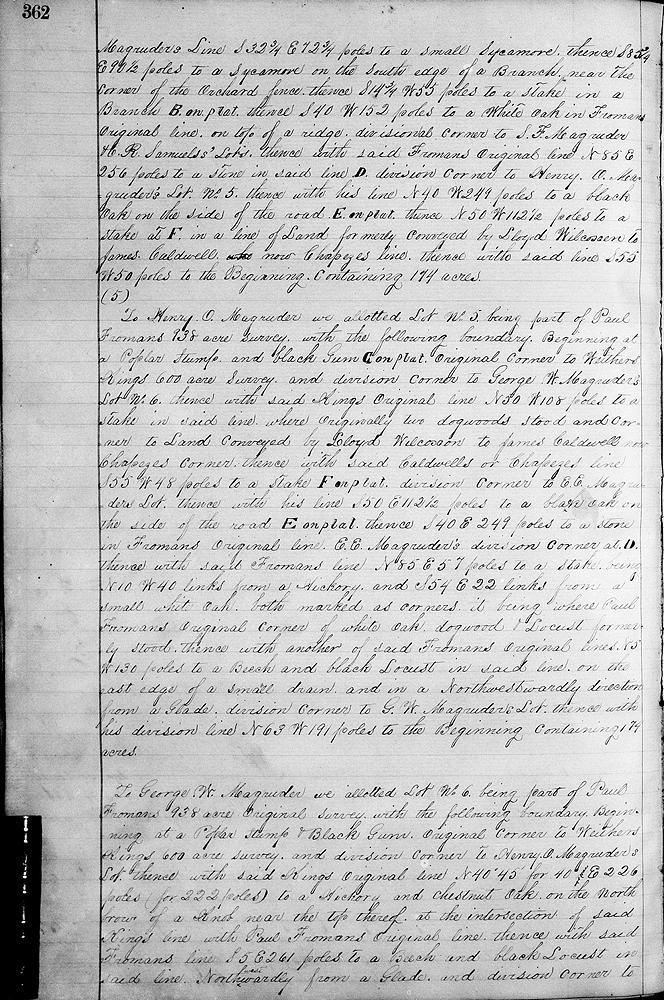 362
Magruders Line S 32¾ E 72¾ poles to a small Sycamore. thence S 85¼
E 90½ poles to a Sycamore on the South edge of a Branch, near the
Corner of the Orchard fence. thence S 14¾ W 55 poles to a stake in a
Branch B. on plat. thence S 40 W 152 poles to a White Oak in Fromans
Original line. on top of a ridge. divisional Corner to S. F. Magruder
& C. R. Samuels' Lots. thence with said Fromans Original line N 85 E
256 poles to a Stone in said line D. division Corner to Henry. O. Ma-
gruder's Lot. No 5. thence with his line N 40 W 249 poles to a black
Oak on the side of the road E. on plat. thence N 50 W 112½ poles to a
Stake at F. in a line of Land formerly Conveyed by Lloyd Wilcoxen to
James. Caldwell. now Chapezes line. thence with said line S 55
W 50 poles to the Beginning. Containing 174 acres.
(5)
To Henry. O. Magruder we allotted Lot No 5. being part of Paul
Fromans 938 acre Survey. with the following boundary. Beginning at
a Poplar Stump. and black Gum C on plat. Original Corner to Withers
Kings 600 acre Survey. and division Corner to George W. Magruder's
Lot No 6. thence with said Kings Original line N 50 W 108 poles to a
Stake in said line. where Originally two dogwoods stood and Cor-
ner to Land Conveyed by Lloyd Wilcoxon to James Caldwell now
Chapezes Corner. thence with said Caldwells or Chapezes line
S 55 W 48 poles to a Stake F on plat. division Corner to E. E. Magru-
ders Lot. thence with his line S 50 E 112½ poles to a black Oak on
the side of the road E on plat. thence S 40 E 249 poles to a stone
in Fromans Original line. E. E. Magruder's division Corner at. D.
thence with said Fromans line N 85 E 57 poles to a stake. being
N 10 W 40 links from a Hickory. and S 54 E 22 links from a
small whit Oak. both marked as corners. it being where Paul
Fromans Original Corner of white Oak. dogwood & Locust former-
ly stood. thence with another of said Fromans Original lines. N 5
W 130 poles to a Beech and black Locust in said line. on the
east edge of a small drain. and in a Northwestwardly direction
from a Glade. division Corner to G. W. Magruder's Lot. thence with
his division line N 63 W 191 poles to the Beginning Containing 174
acres.
To George. W. Magruder we allotted Lot No 6. being part of Paul
Fromans 938 acre Original survey. with the following boundary. Begin-
ning at a Poplar stump & Black Gum. Original Corner to Withers
Kings. 600 acre survey. and division Corner to Henry. O. Magruder's
Lot. thence with said Kings Original line N 40° 45 for 40 E 226
poles (for 222 poles) to a Hickory and chestnut Oak. on the North
brow of a Knob near the top thereof. at the intersection of said
Kings line with Paul Fromans Original line. thence with said
Fromans line S 5 E 261 poles to a Beech and black Locust in
said line. Northwestwardly from a Glade. and division Corner to